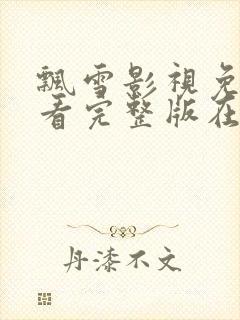 飄雪影視免
看完整版在
丹漆不文